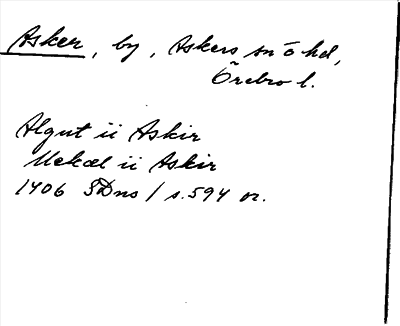 Asker, by, Askers sn ö hd,
Örebro l.
Algut ii Askir
Mekæl ii Askir
1406 SDns 1 s. 594 or.